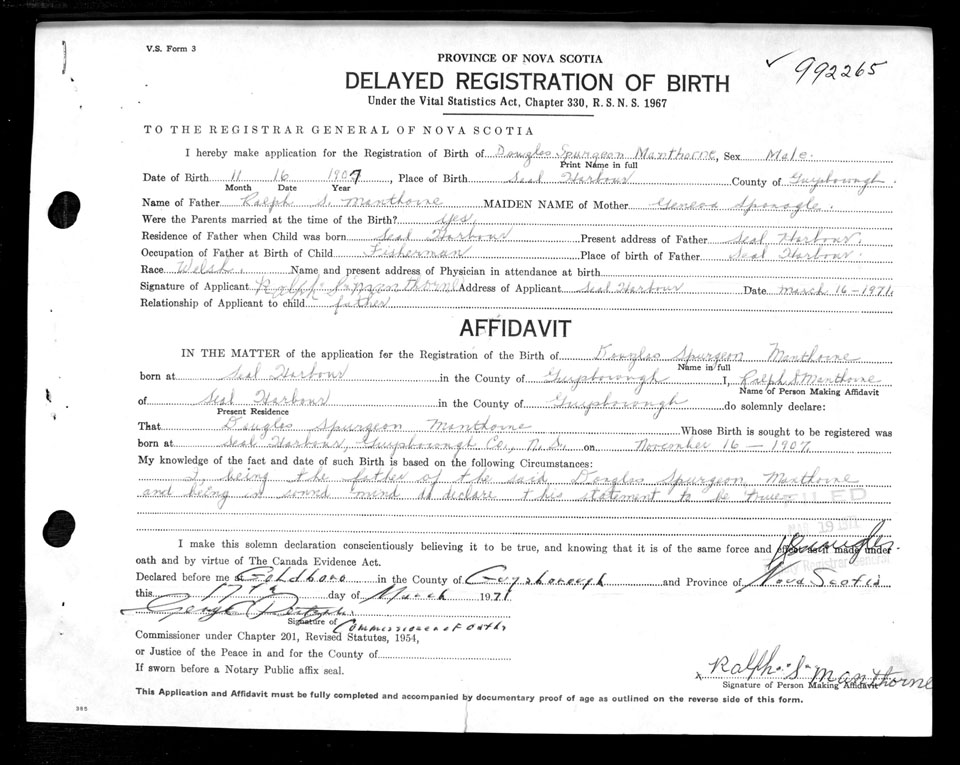 V.S. Form 3
PROVINCE OF NOVA SCOTIA
✓ 992265
DELAYED REGISTRATION OF BIRTH
Under the Vital Statistics Act, Chapter 330, R.S.N.S. 1967
TO THE REGISTRAR GENERAL OF NOVA SCOTIA
I hereby make application for the Registration of Birth of Douglas Spurgeon Manthorne, Sex Male.
Print Name in full
Date of Birth 11 16 1907, Place of Birth Seal Harbour County of Guysborough.
Month Date Year
Name of Father Ralph S. Manthorne MAIDEN NAME of Mother Geneva Sponagle.
Were the Parents married at the time of the Birth? yes.
Residence of Father when Child was born Seal Harbour Present address of Father Seal Harbour.
Occupation of Father at Birth of Child Fisherman Place of birth of Father Seal Harbour.
Race Welsh. Name and present address of Physician in attendance at birth
Signature of Applicant Ralph S Manthorne Address of Applicant Seal Harbour Date March 16-1971.
Relationship of Applicant to child father
AFFIDAVIT
IN THE MATTER of the application for the Registration of the Birth of Douglas Spurgeon Manthorne
Name in full
born at Seal Harbour in the County of Guysborough I, Ralph S Manthorne
Name of Person Making Affidavit
of Seal Harbour in the County of Guysborough do solemnly declare:
Present Residence
That Douglas Spurgeon Manthorne Whose Birth is sought to be registered was
born at Seal Harbour, Guysborough Co., N.S. on November 16 - 1907.
My knowledge of the fact and date of such Birth is based on the following Circumstances:
I, being the father of the said, Douglas Spurgeon Manthorne
and being in sound mind do declare this statement to be true
19 1971
I make this solemn declaration conscientiously believing it to be true, and knowing that it is of the same force and effect as if made under
oath and by virtue of The Canada Evidence Act.
Registrar General
Declared before me at Goldboro in the County of Guysborough and Province of Nova Scotia
this 17th day of March 1971
George
Signature of Commissioner of Oaths
Commissioner under Chapter 201, Revised Statutes, 1954,
or Justice of the Peace in and for the County of
If sworn before a Notary Public affix seal.
x Ralph S Manthorne
Signature of Person Making Affidavit
This Application and Affidavit must be fully completed and accompanied by documentary proof of age as outlined on the reverse side of this form.
385